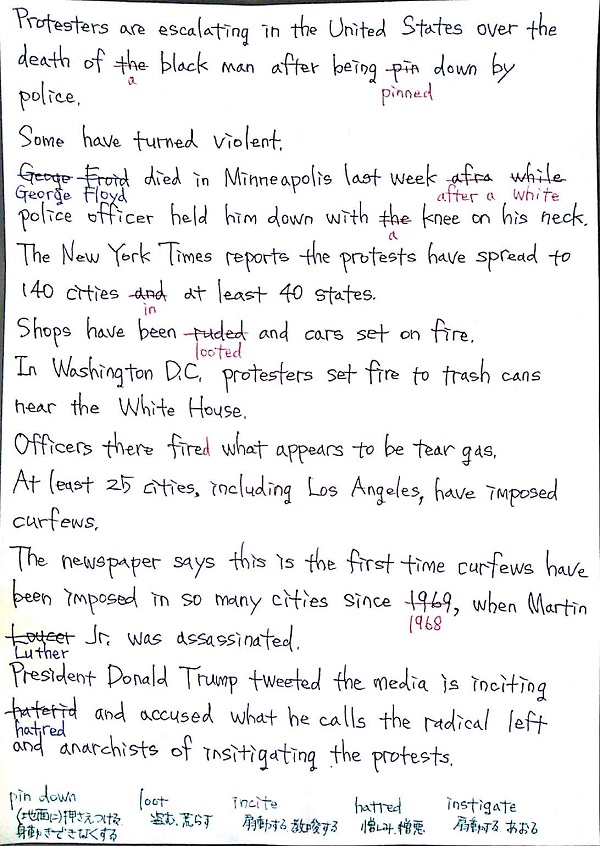 Protesters are escalating in the United States over the
death of the black man after being pin down by
a pinned
police.
Some have turned violent.
Geoge Froid died in Minneapolis last week afra while
George Floyd after a white
police officer held him down with the knee on his neck.
a
The New York Times reports the protests have spread to
140 cities and at least 40 states.
in
Shops have been ruded and cars set on fire.
looted
In Washington D.C. protesters set fire to trash cans
near the White House.
Officers there fired what appears to be tear gas.
At least 25 cities, including Los Angeles, have imposed
curfews.
The newspaper says this is the first time curfews have
been imposed in so many cities since 1969, when Martin
1968
Jr. was assassinated.
Luther
President Donald Trump tweeted the media is inciting
haterid and accused what he calls the radical left
hatred
and anarchists of insitigating the protests.
pin down loot incite hatred instigate
(地面に)押さえつける 盗む、荒らす 扇動する 教唆する 憎しみ、憎悪 扇動する あおる
身動きできなくする